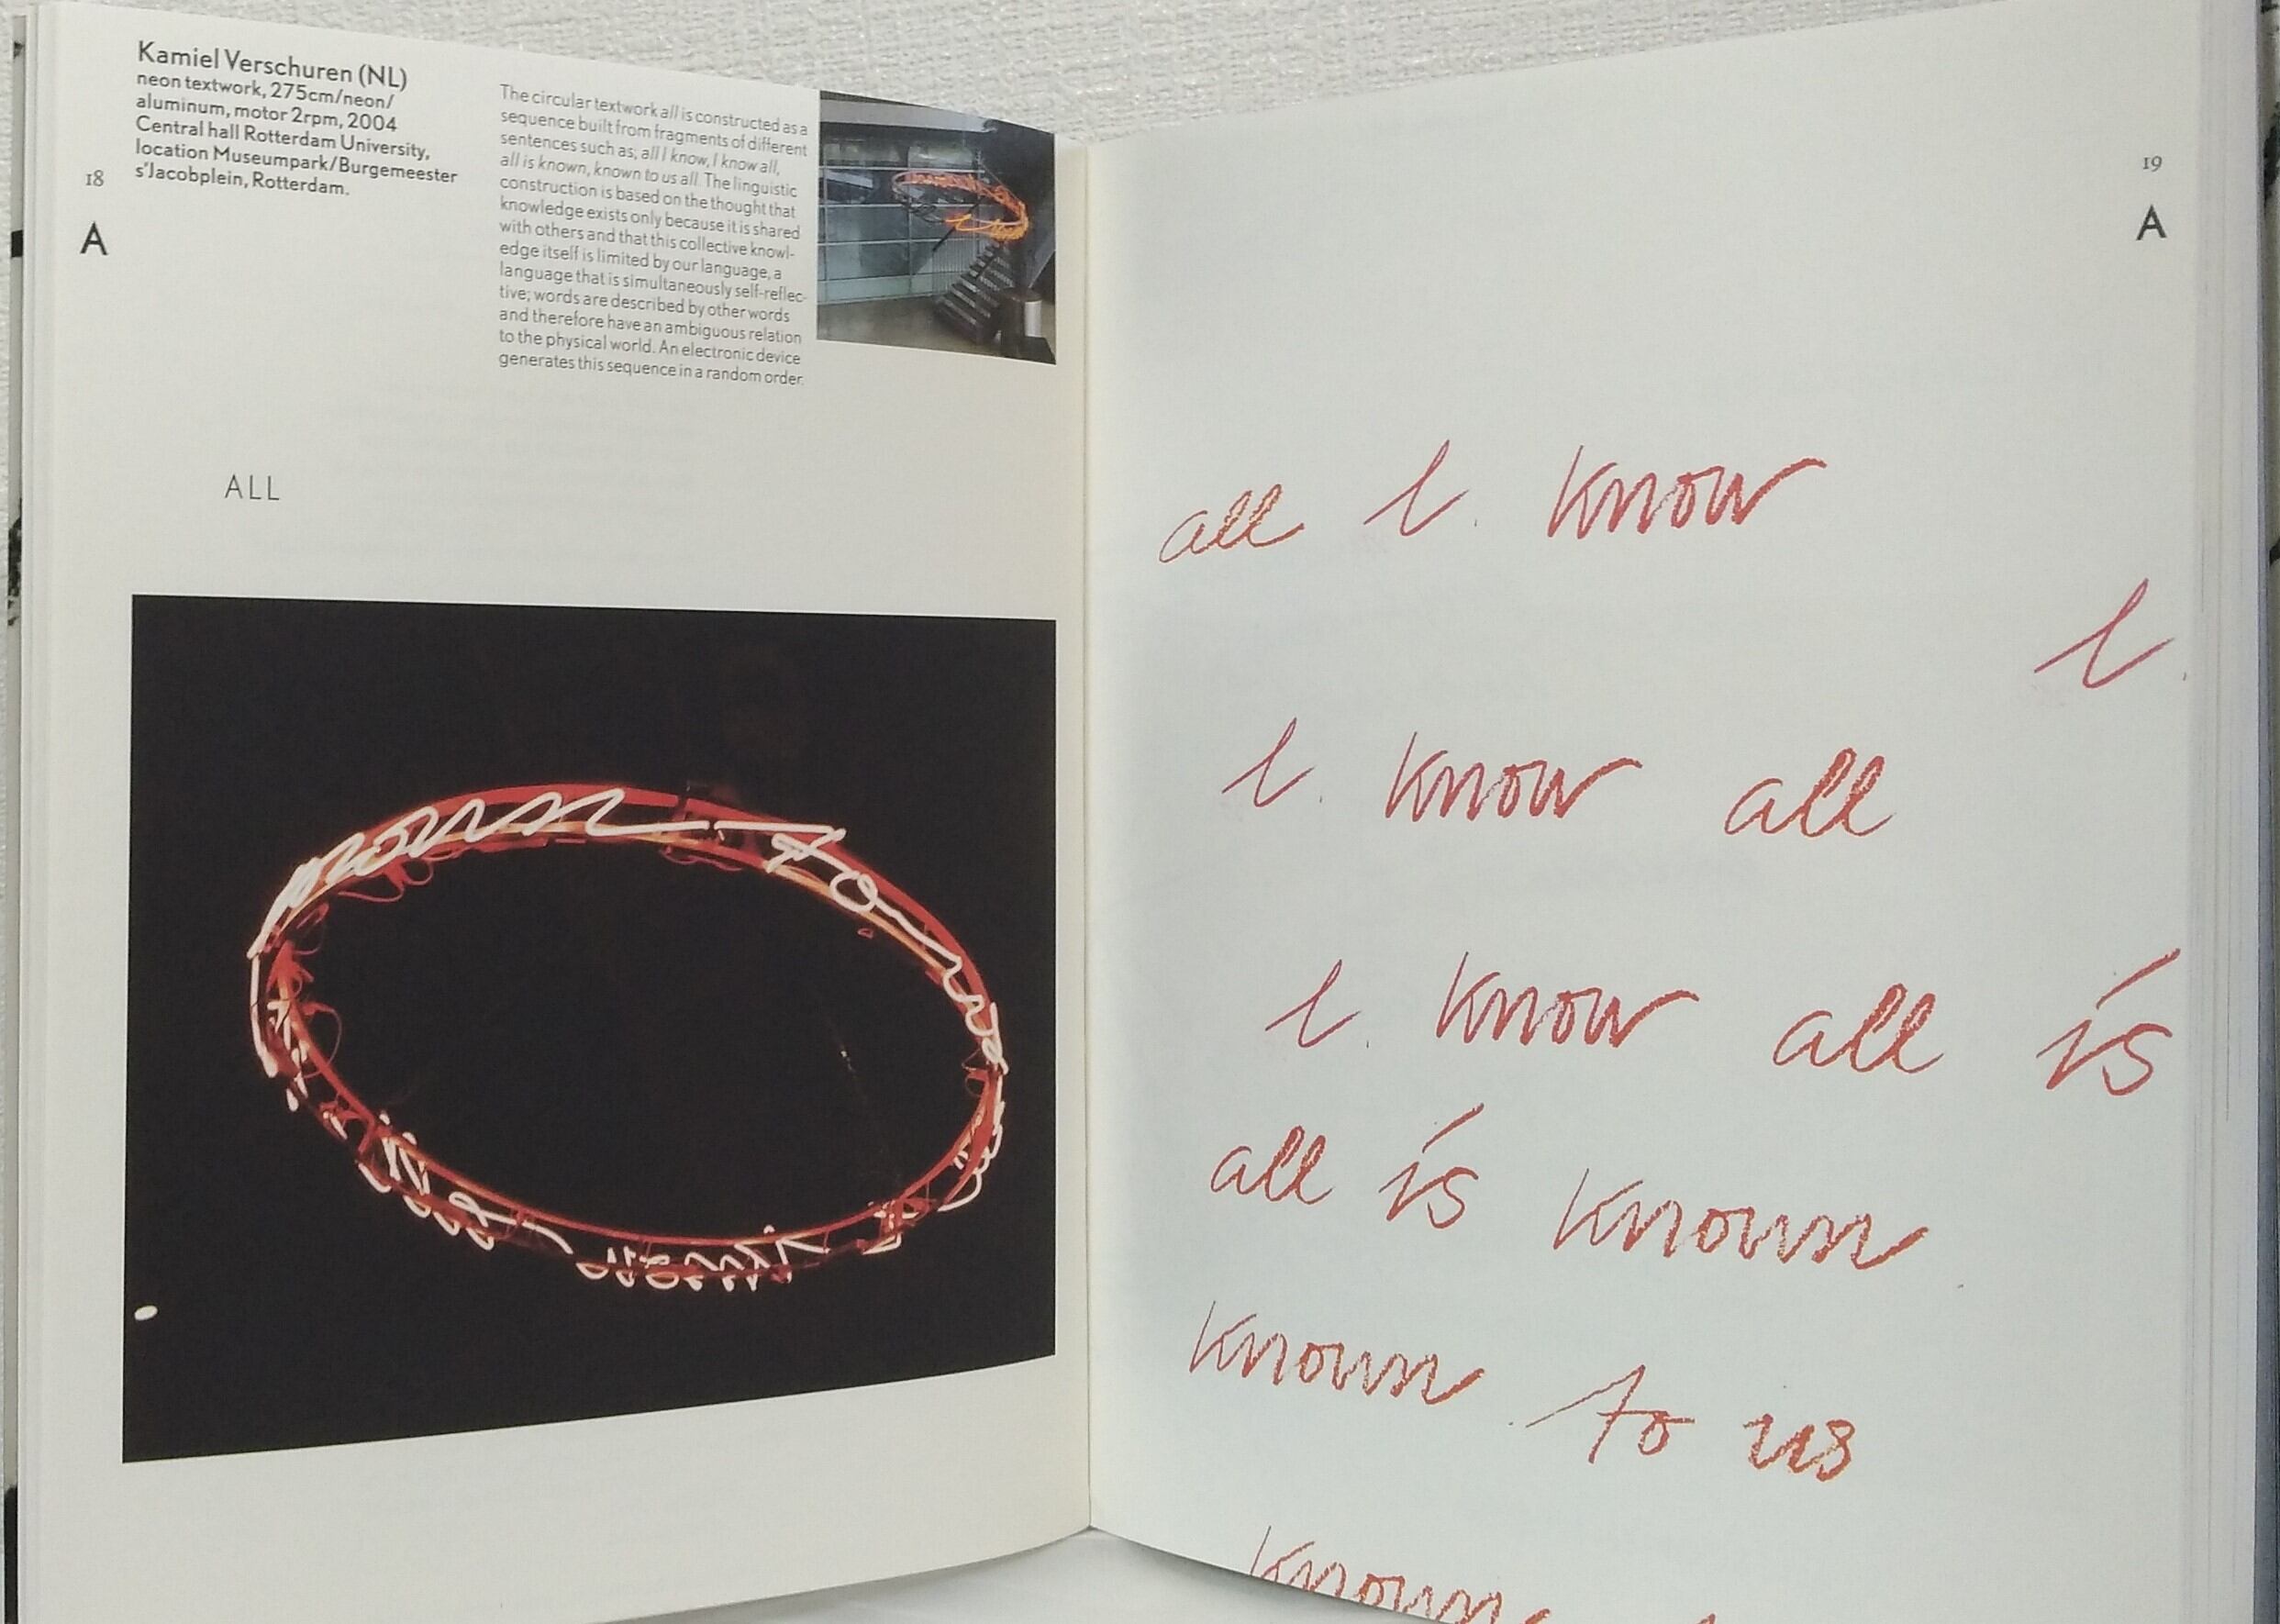 Kamiel Verschuren (NL)
neon textwork, 275cm/neon/
aluminum, motor 2rpm, 2004
Central hall Rotterdam University,
location Museumpark/Burgemeester
s'Jacobplein, Rotterdam.
18
A
The circular textwork all is constructed as a
sequence built from fragments of different
sentences such as; all I know, I know all,
all is known, known to us all. The linguistic
construction is based on the thought that
knowledge exists only because it is shared
with others and that this collective knowl-
edge itself is limited by our language, a
language that is simultaneously self-reflec-
tive; words are described by other words
and therefore have an ambiguous relation
to the physical world. An electronic device
generates this sequence in a random order.
ALL
known to us
19
A
all I know
I
I know all
I know all is
all is known
known to us
known